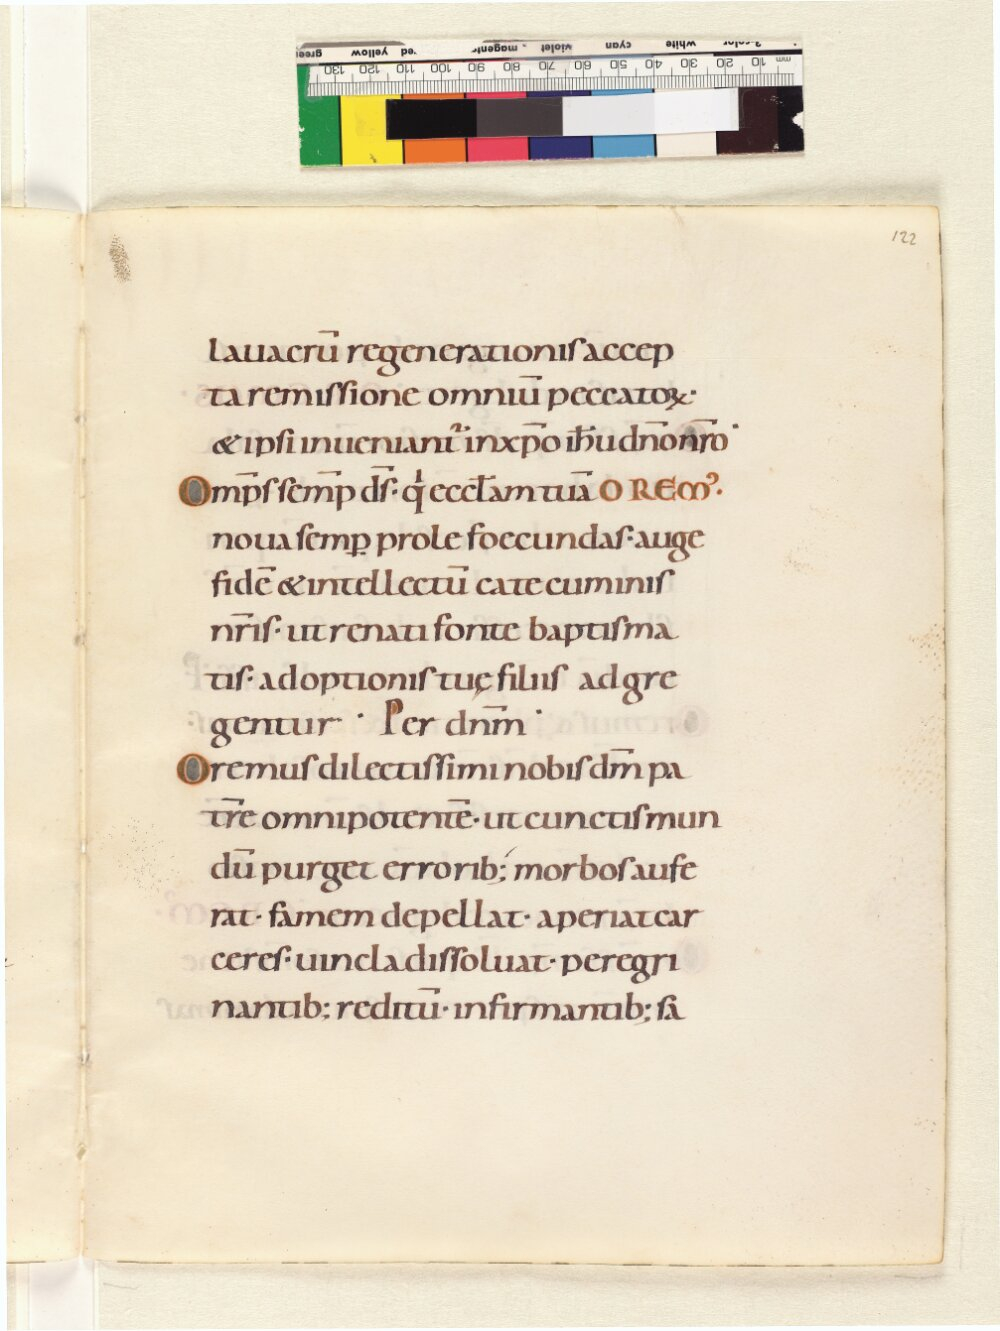 122
lauacrū regenerationiſ accep
ta remiſſione omniū peccatoꝝ·
& ipſi inueniant᷑ in xp̄o ih̄u dn̄o nr̄o·
Omp̄s semp̄ ds̄· qͥ eccl̄am tuā OREMꝰ·
noua ſemꝑ prole foecundaſ· auge
fidē & intellectū catecuminiſ
nr̄iſ· ut renati fonte baptiſma
tiſ· adoptioniſ tuę filiiſ adgre
gentur · Per dnm̄ ·
Oremuſ dilectiſſimi nobiſ dm̄ pa
tr̄e omnipotentē· ut cunctiſ mun
dū purget errorib; morboſ aufe
rat· famem depellat· aperiat car
cereſ· uincla diſſoluat· peregri
nantib; reditū· infirmantib; ſa